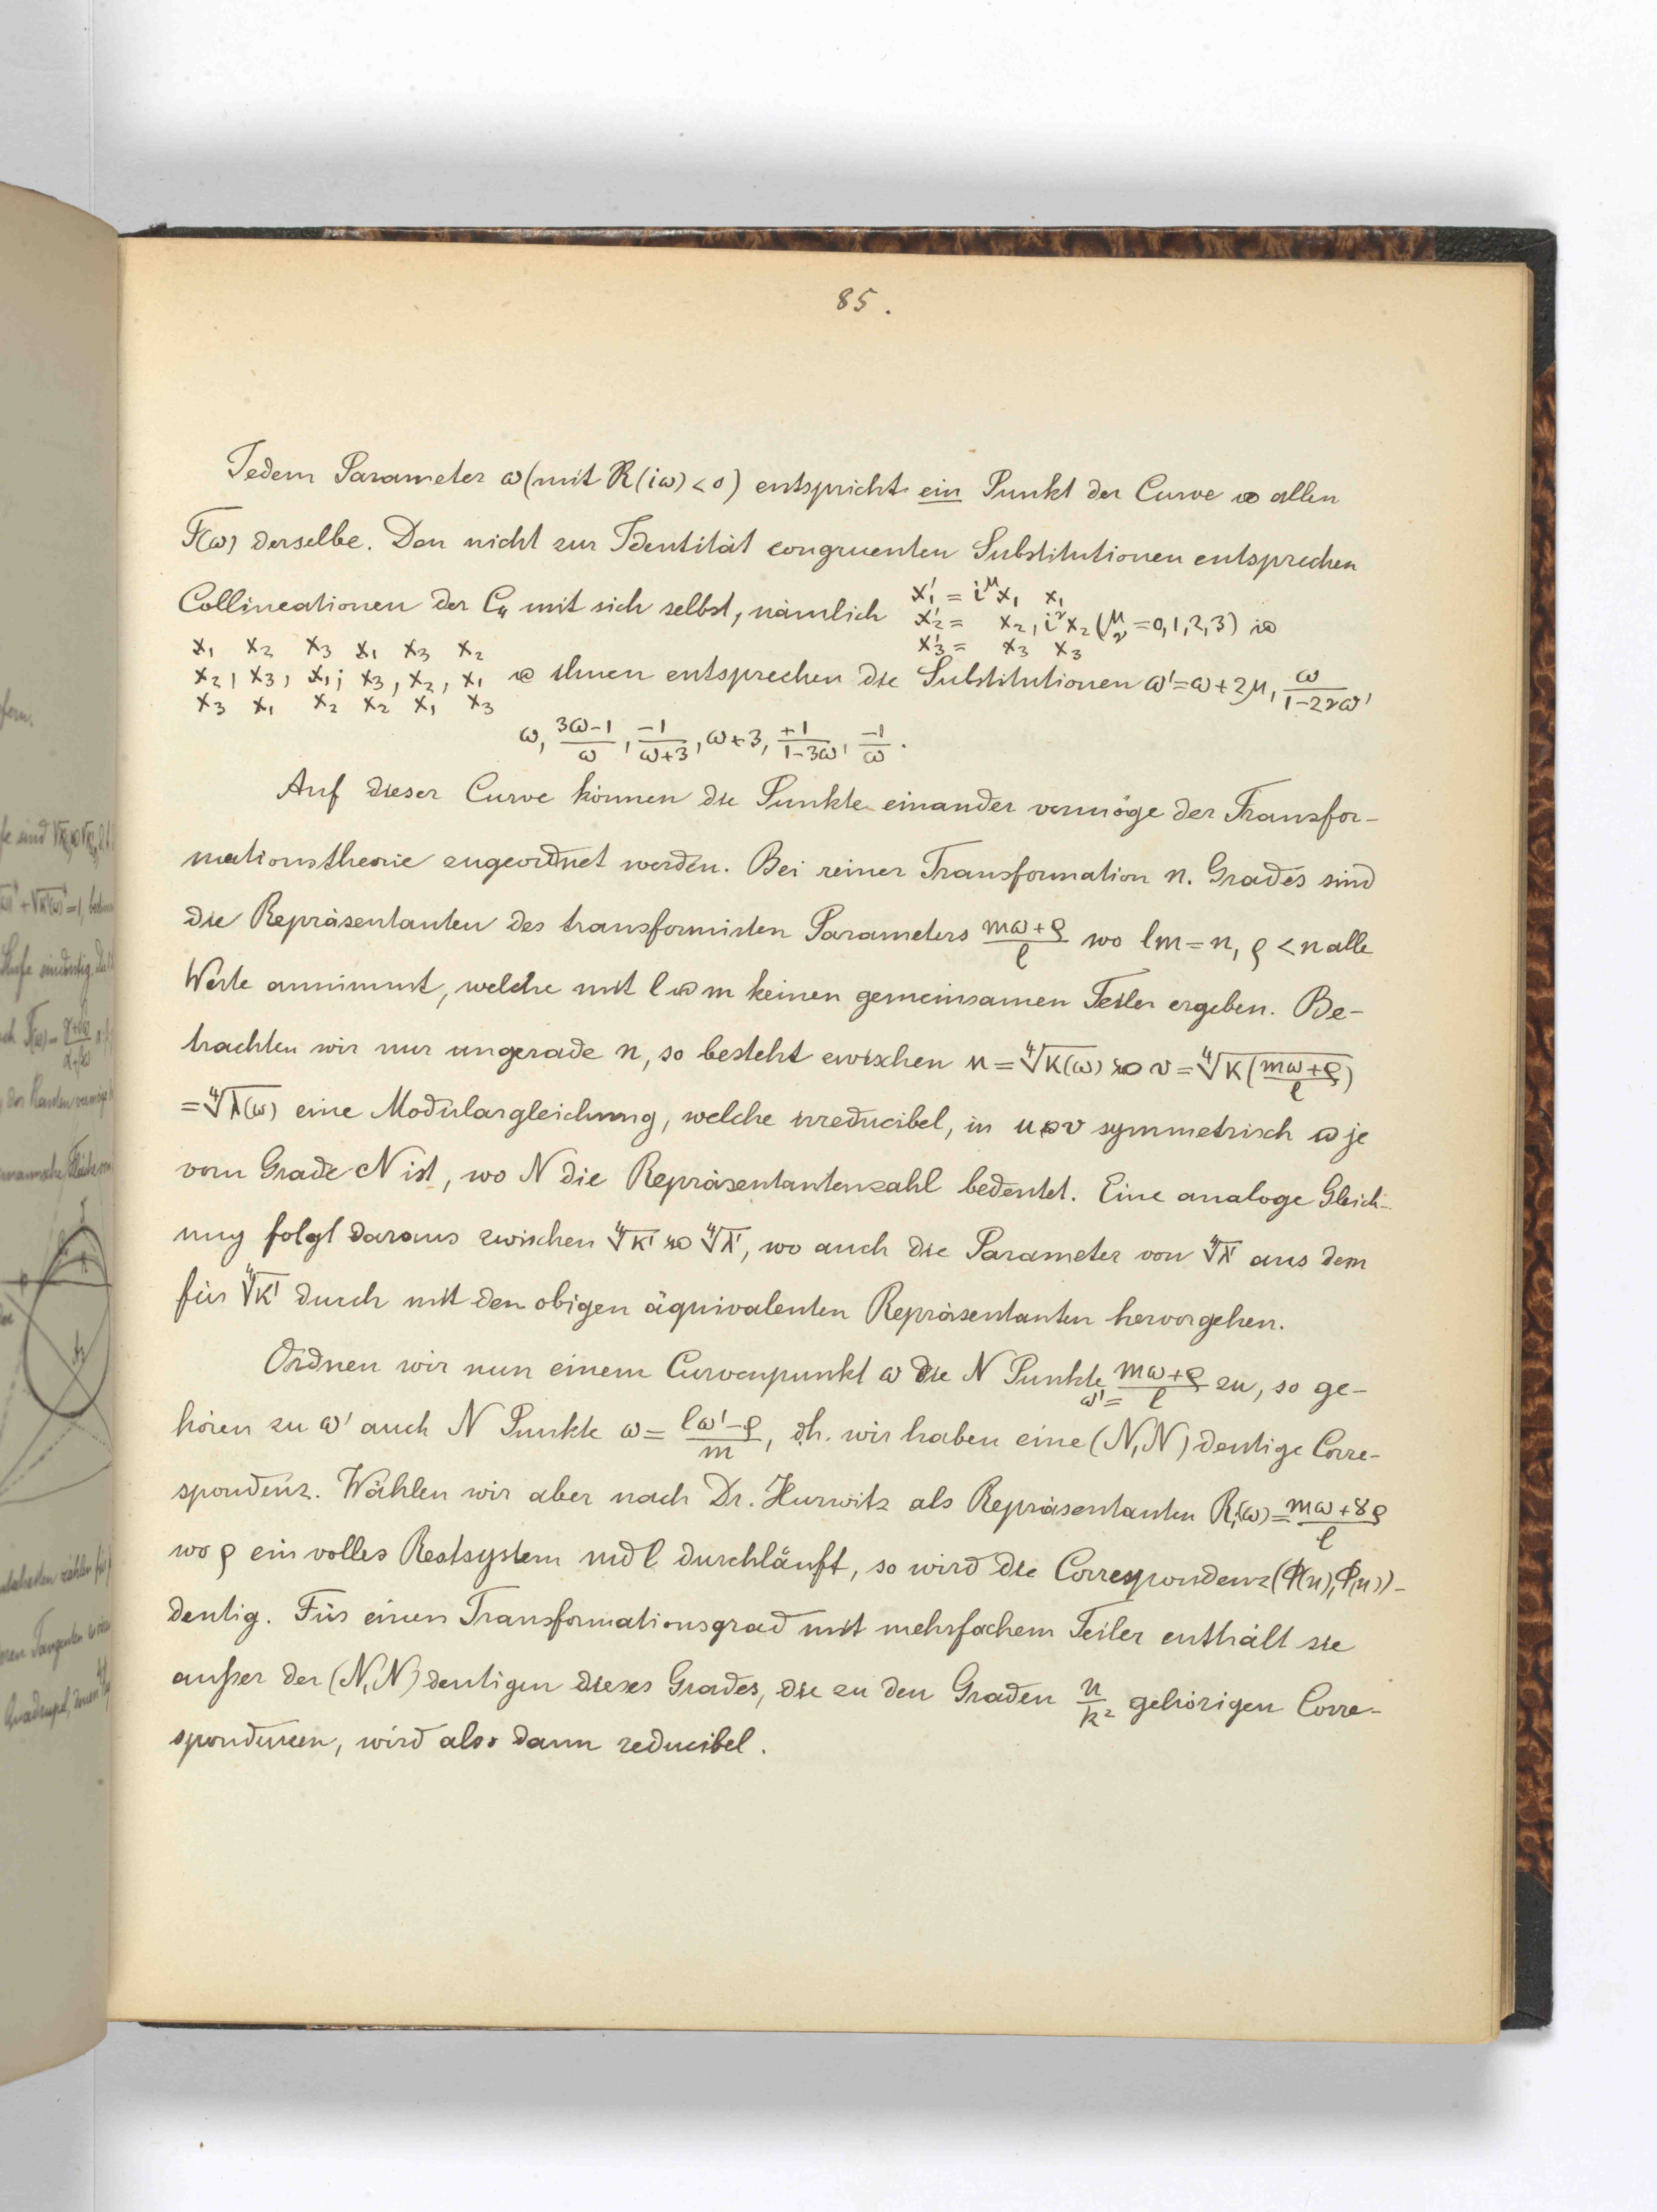 85.
Jedem Parameter ω (mit R(iω) < 0) entspricht ein Punkt der Curve u allen
F(ω) derselbe. Den nicht zur Identität congruenten Substitutionen entsprechen
Collineationen der C₄ mit sich selbst, nämlich x₁' = i^μ x₁ x₁
x₂' = x₂, i^ν x₂ (μ ν = 0,1,2,3) u
x₃' = x₃ x₃
x₁ x₂ x₃ x₁ x₃ x₂
x₂, x₃, x₁; x₃, x₂, x₁ u ihnen entsprechen die Substitutionen ω' = ω + 2μ, ω/(1-2νω),
x₃ x₁ x₂ x₂ x₁ x₃
ω, (3ω-1)/ω, -1/(ω+3), ω+3, +1/(1-3ω), -1/ω.
Auf dieser Curve können die Punkte einander vermöge der Transfor-
mationstheorie zugeordnet werden. Bei reiner Transformation n. Grades sind
die Repräsentanten des transformirten Parameters (mω+ρ)/l wo lm = n, ρ < n alle
Werte annimmt, welche mit l u m keinen gemeinsamen Teiler ergeben. Be-
trachten wir nur ungerade n, so besteht zwischen u = ∜K(ω) u v = ∜K((mω+ρ)/l)
= ∜λ(ω) eine Modulargleichung, welche irreducibel, in u u v symmetrisch u je
vom Grade N ist, wo N die Repräsentantenzahl bedeutet. Eine analoge Gleich-
ung folgt daraus zwischen ∜K' u ∜λ', wo auch die Parameter von ∜λ' aus dem
für ∜K' durch mit den obigen äquivalenten Repräsentanten hervorgehen.
Ordnen wir nun einem Curvenpunkt ω die N Punkte ω' = (mω+ρ)/l zu, so ge-
hören zu ω' auch N Punkte ω = (lω'-ρ)/m, dh. wir haben eine (N,N) deutige Corre-
spondenz. Wählen wir aber nach Dr. Hurwitz als Repräsentanten Rᵢ(ω) = (mω+8ρ)/l
wo ρ ein volles Restsystem mod l durchläuft, so wird die Correspondenz (Φ(n), Φ(n))-
deutig. Für einen Transformationsgrad mit mehrfachem Teiler enthält sie
außer der (N,N) deutigen dieses Grades, die zu den Graden n/k² gehörigen Corre-
spondenzen, wird also dann reducibel.